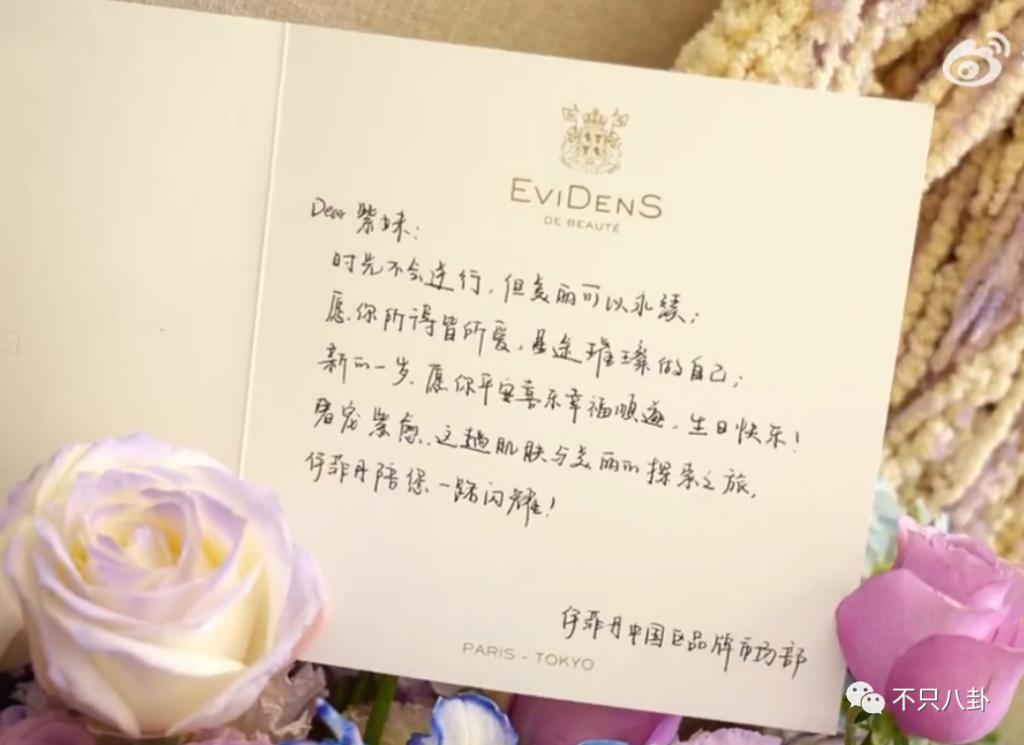 EVIDENS
DE BEAUTÉ
Dear 紫妹:
时光不会逆行,但美丽可以永续;
愿你所得皆所爱,星途璀璨做自己;
新的一岁,愿你平安喜乐幸福顺遂,生日快乐!
宠 这趟肌肤与美丽的探索之旅,
伊菲丹陪您一路闪耀!
伊菲丹中国区品牌市场部
PARIS - TOKYO
不只八卦